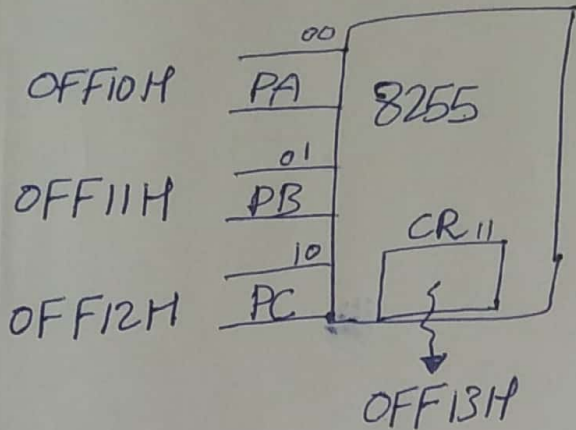 00
OFF10H PA 8255
01
OFF11H PB
CR 11
10
OFF12H PC
OFF13H